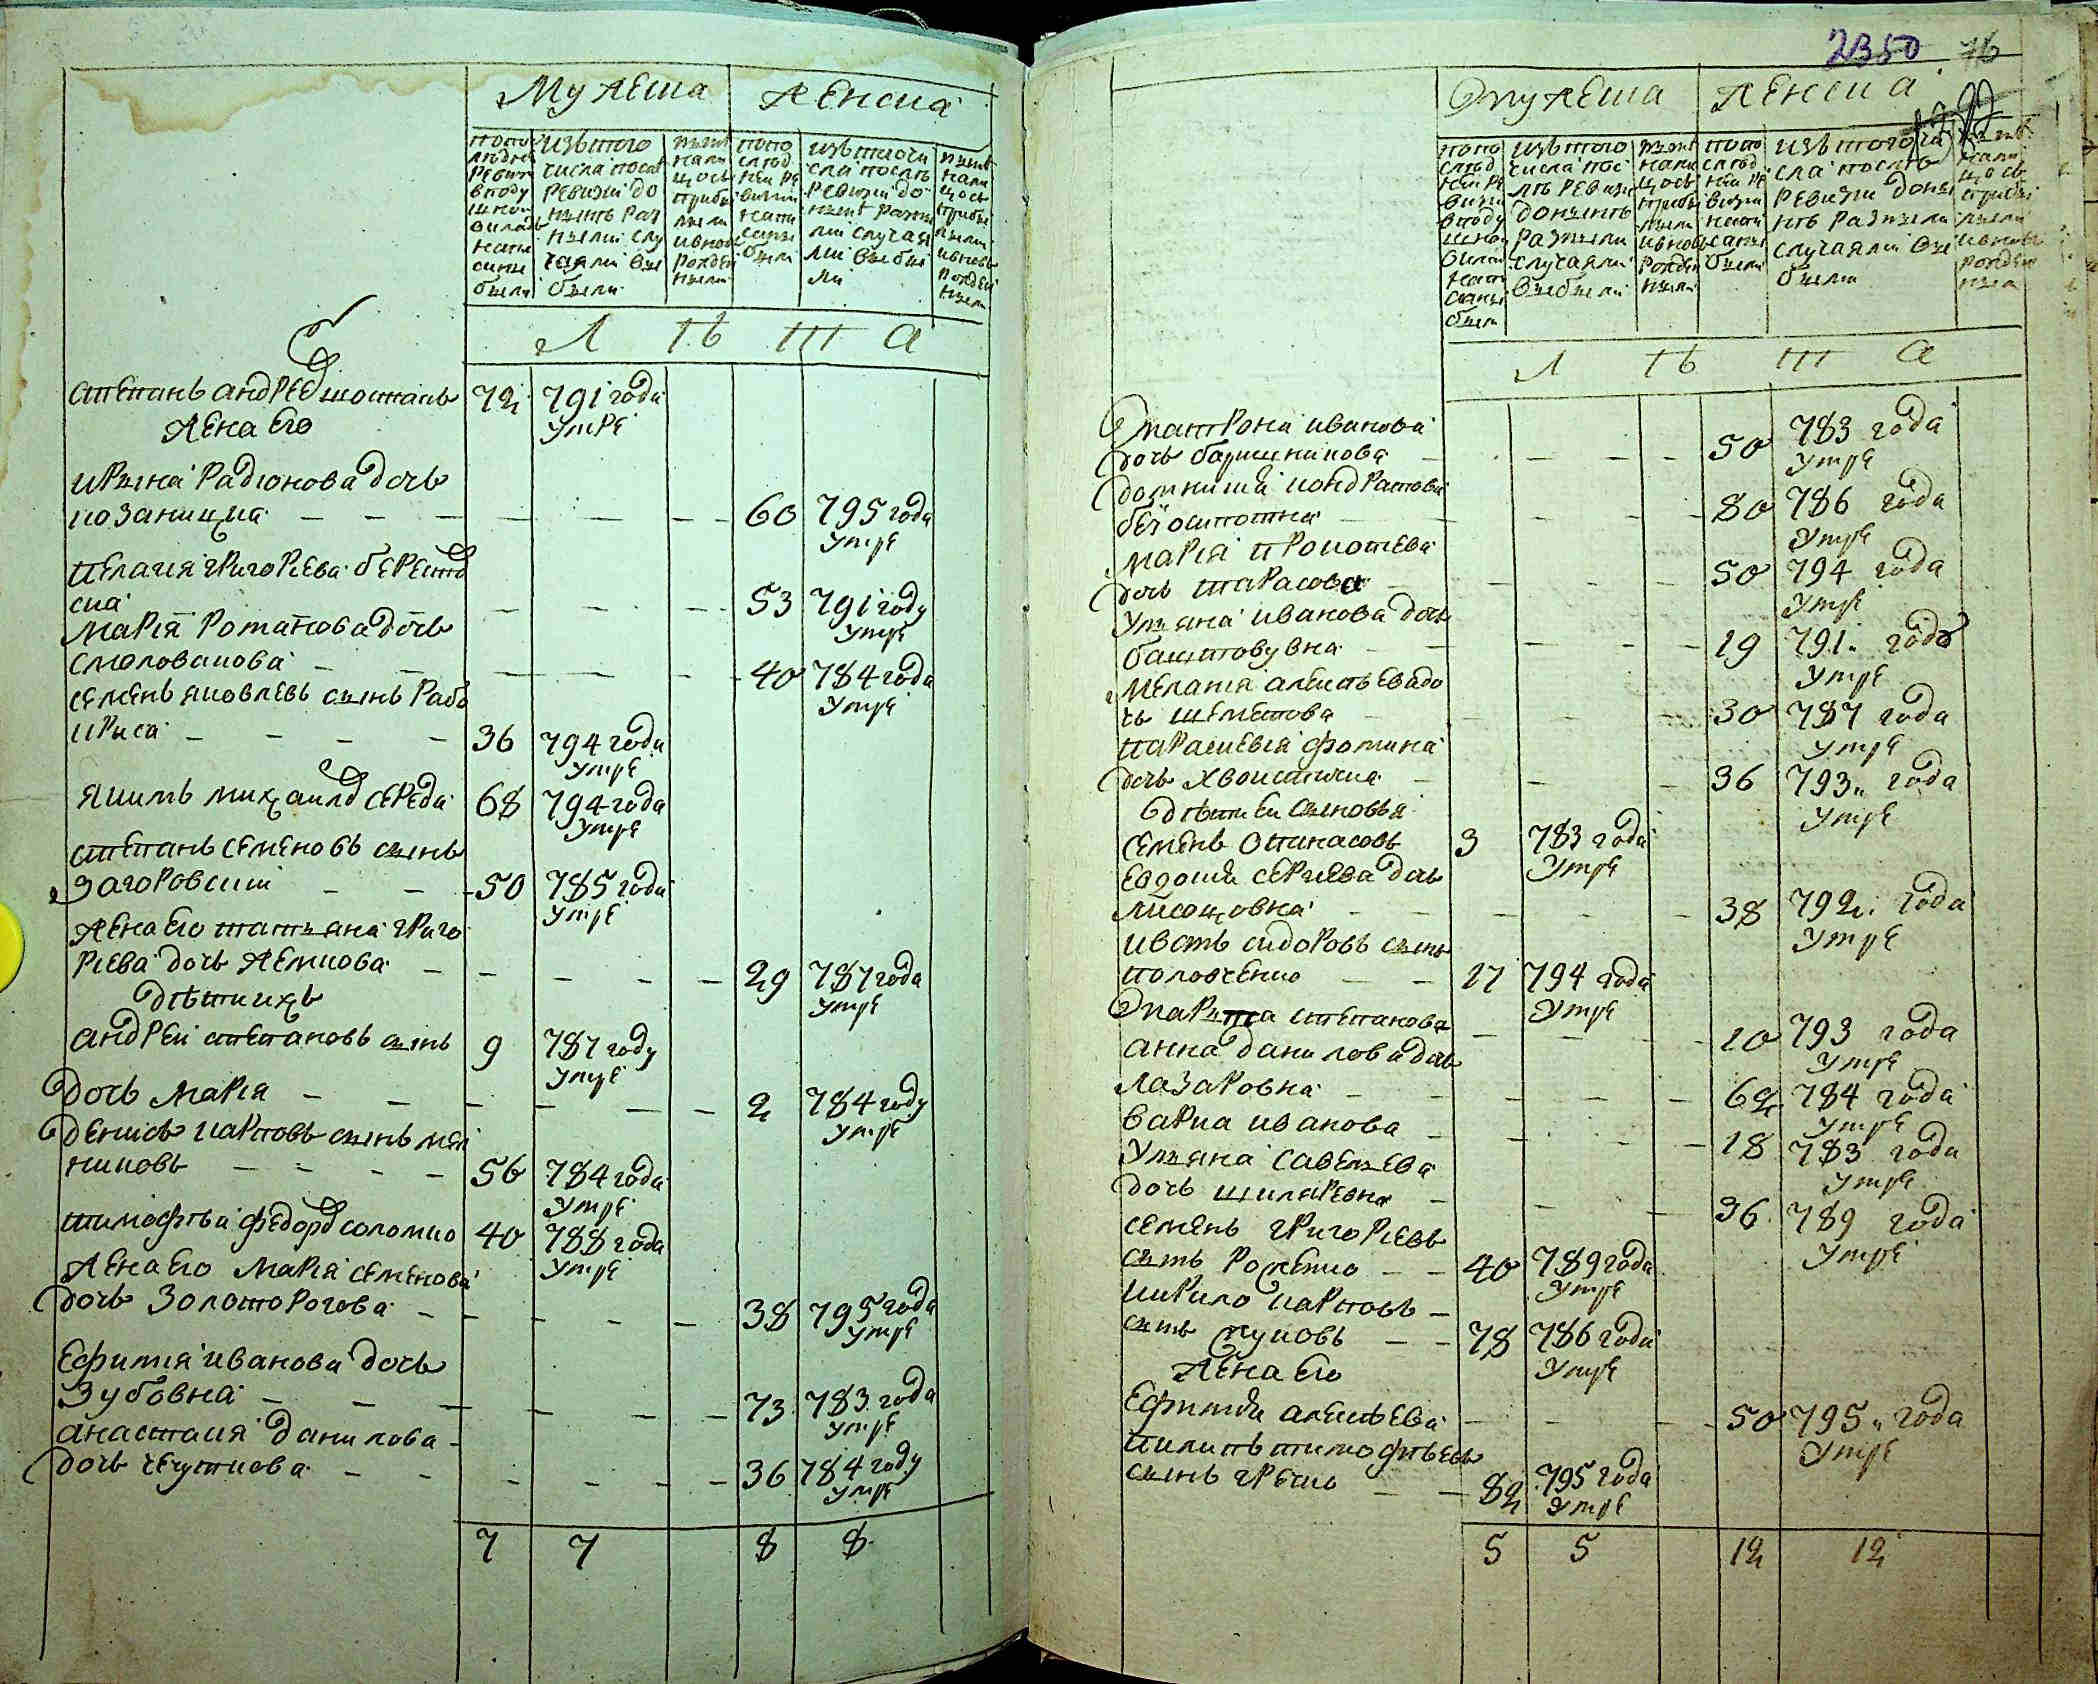 Мужеска
Женска
по по
следней
ревизи
в поду
шной
окладъ
напи
саны
были
изъ того
числа после
ревизии до
нынѣ раз
ными слу
чаями вы
были
ныне
нали
цо съ
прибы
лыми
и вновь
рожден
ными
по по
след
ней ре
визии
напи
саны
были
изъ того чи
сла послѣ
ревизии до
нынѣ разны
ми случая
ми выбы
ли
ныне
нали
цо съ
прибы
лыми
и вновь
рожден
ными
Л Ѣ Т А
Степанъ Андреевъ Шостакъ 72 791 года
жена его умре
Ирына Радионова дочь
Козаницка 60 795 года
умре
Пелагия Григориева Берестов
ска 53 791 году
умре
Мария Романова дочь
Смоловикова 40 784 года
умре
Семенъ Яковлевъ сынъ Рабо
криса 36 794 года
умре
Якимъ Михаиловъ Середа 68 794 года
умре
Степанъ Семеновъ сынъ
Загоровский 50 785 года
умре
жена его Татьяна Григо
риева дочь 29 787 года
умре
дѣти ихъ
Андрей Степановъ сынъ 9 787 году
умре
дочь Мария 2 784 году
умре
Денисъ Карповъ сынъ Мел
никовъ 56 784 года
умре
Тимофѣй Федоровъ Соломко 40 788 года
умре
жена его Мария Семенова
дочь Золоторогова 38 795 года
умре
Ефимия Иванова дочь
Зубовна 73 783 года
умре
Анастасия Данилова
дочь 36 784 году
умре
7 7 8 8
2350 76
Мужеска
Женска
по по
след
ней ре
визии
в поду
шной
оклад
напи
саны
были
изъ того
числа пос
лѣ ревизи
до нынѣ
разными
случаями
выбыли
ныне
нали
цо съ
прибы
лыми
и вновь
рожден
ными
по по
след
ней ре
визии
напи
саны
были
изъ того чи
сла послѣ
ревизии до ны
нѣ разными
случаями вы
были
ныне
нали
цо съ
прибы
лыми
и вновь
рожден
ными
Л Ѣ Т А
Матрона Иванова
дочь Барышникова 50 783 года
умре
Домникия Кондратова
Безкоптна 80 786 года
умре
Мария Прокопева
дочь Тарасова 50 794 года
умре
Ульяна Иванова дочь
Баштовувна 19 791 года
умре
Мелания Алексѣева до
чь Шеметова 30 787 года
умре
Параскевия Фомина
дочь Хвостична 36 793 года
умре
дѣти ей сыновья
Семенъ Опанасовъ 3 783 года
умре
Евдокия Сергиева дочь
Лисоцовна 38 792 года
умре
Иванъ Сидоровъ сынъ
Половченко 17 794 года
умре
Марина Степанова 10 793 года
умре
Анна Данилова дочь
Лазаровна 62 784 года
умре
Варка Иванова 18 783 года
умре
Ульяна Савельева
дочь Шиляревна 36 789 года
умре
Семенъ Григориевъ
сынъ Роженко 40 789 года
умре
Кирило Карповъ
сынъ Жуковъ 78 786 года
умре
жена его
Ефимия Алексѣева 50 795 года
умре
Пилипъ Тимофѣевъ
сынъ Гречко 82 795 года
умре
5 5 12 12